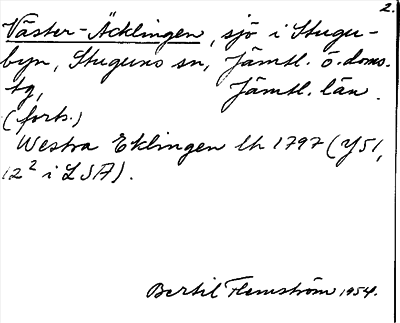 2.
Väster-Äcklingen, sjö i Stugu-
byn, Stuguns sn, Jämtl. ö. doms.
tg, Jämtl. län.
(forts.)
Westra Eklingen lh 1797 (Y51,
12² i LSA).
Bertil Flemström 1954.